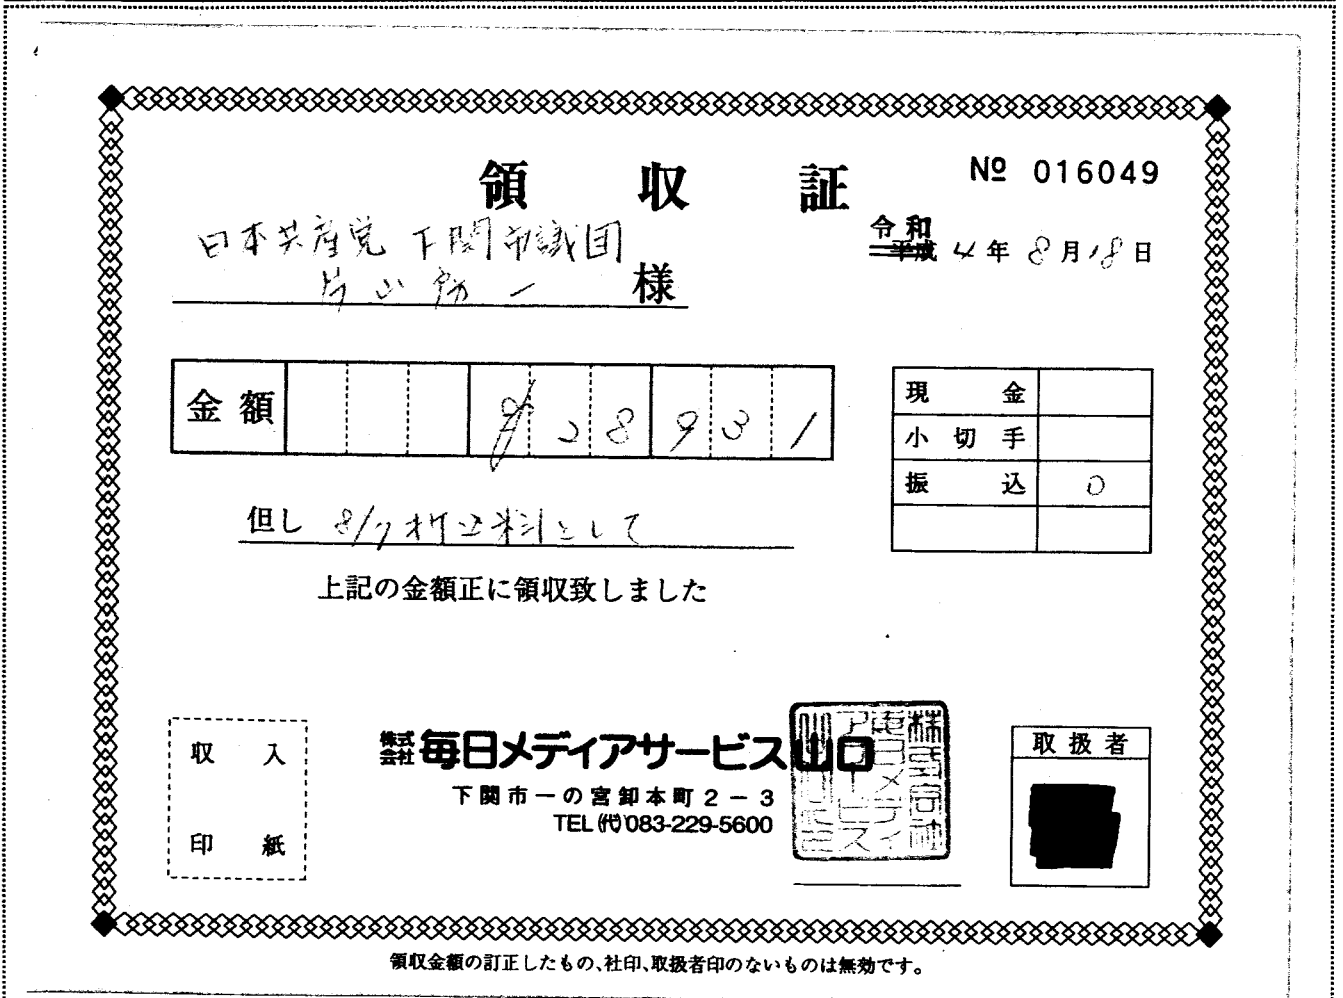 領収証
№ 016049
令和
平成 4年 8月18日
日本共産党 下関市議団
片山房一 様
金額 ¥28931
現金
小切手
振込 0
但し 8/7 折込料として
上記の金額正に領収致しました
収入
印紙
株式会社 毎日メディアサービス山口
下関市一の宮卸本町2-3
TEL(代)083-229-5600
株式会社
毎日メディ
アサービス
取扱者
領収金額の訂正したもの、社印、取扱者印のないものは無効です。